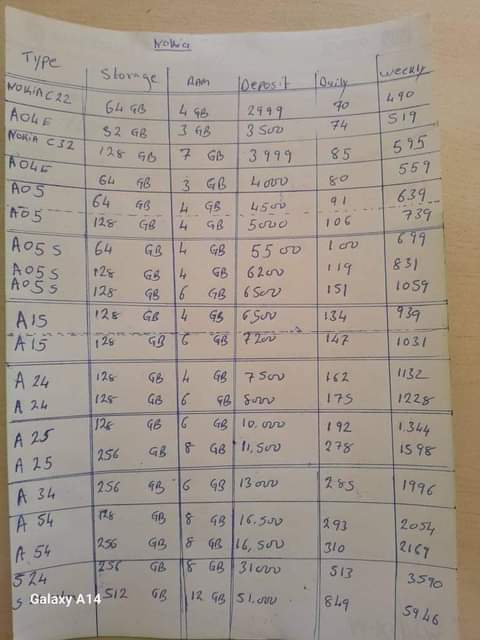 Nokia
Type Storage RAM Deposit Daily Weekly
NOKIA C22 64 GB 4 GB 2999 70 490
A04E 32 GB 3 GB 3500 74 519
NOKIA C32 128 GB 7 GB 3999 85 595
A04E 64 GB 3 GB 4000 80 559
A05 64 GB 4 GB 4500 91 639
A05 128 GB 4 GB 5000 106 739
A05 S 64 GB 4 GB 5500 100 699
A05 S 128 GB 4 GB 6200 119 831
A05 S 128 GB 6 GB 6500 151 1059
A15 128 GB 4 GB 6,500 134 939
A15 128 GB 6 GB 7200 147 1031
A 24 128 GB 4 GB 7500 162 1132
A 24 128 GB 6 GB 8000 175 1228
A 25 128 GB 6 GB 10,000 192 1.344
A 25 256 GB 8 GB 11,500 278 1598
A 34 256 GB 6 GB 13000 285 1996
A 54 128 GB 8 GB 16.500 293 2054
A 54 256 GB 8 GB 16,500 310 2169
S 24 256 GB 8 GB 31000 513 3590
S 512 GB 12 GB 51,000 849 5946
Galaxy A14